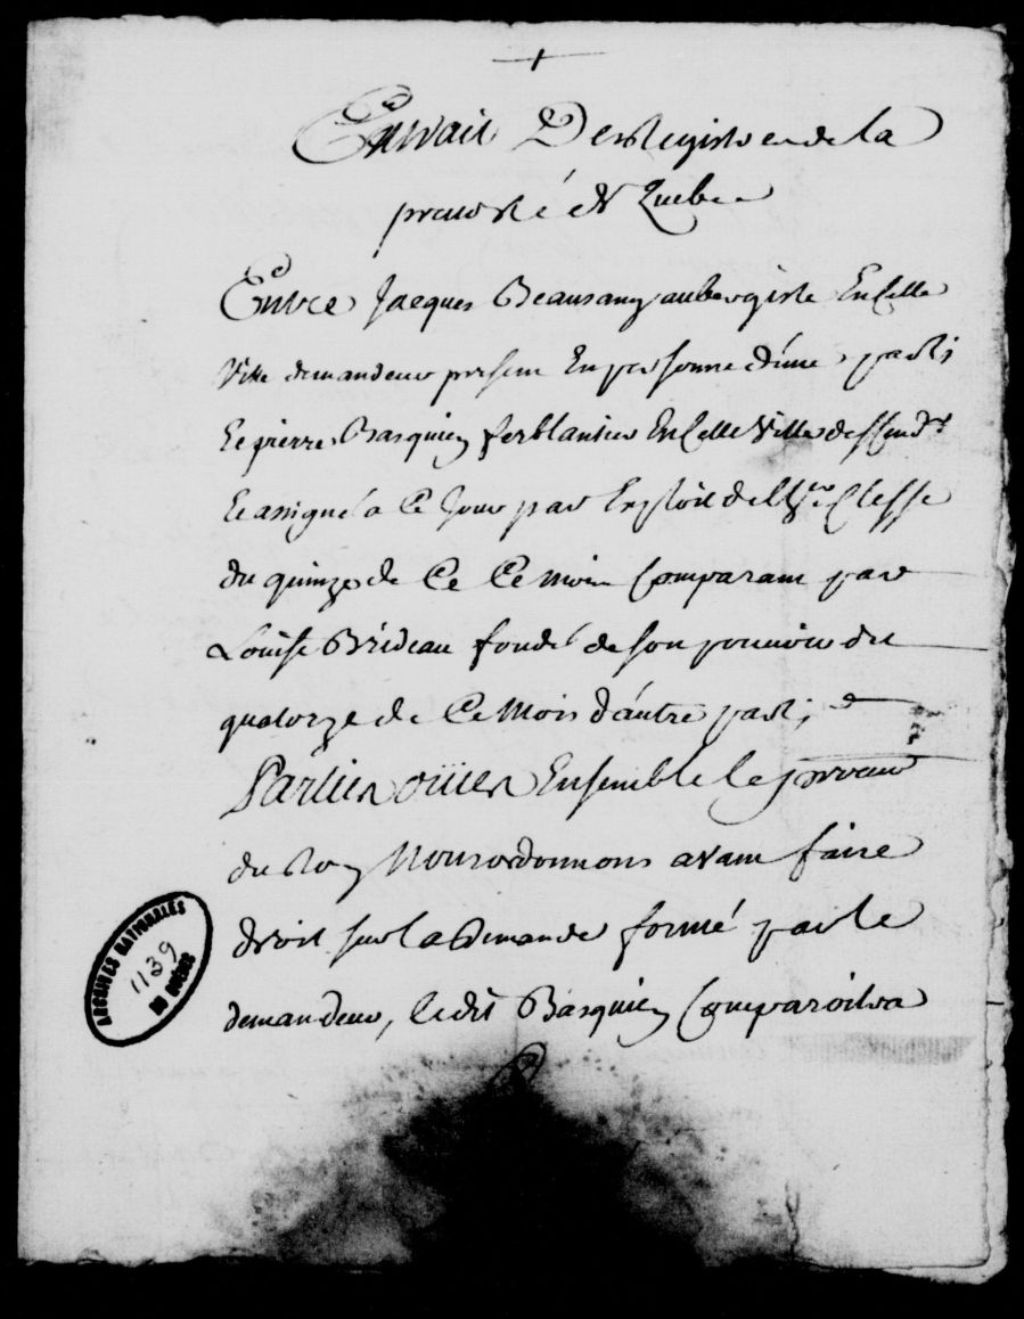 Extrait Des Registres de la
prevosté de Quebec
Entre Jacques Beausang aubergiste En cette
Ville demandeur present En personne d'úne part;
Et pierre Basquin ferblantier En cette Ville deffend.r
Et assigné a Ce Jour par Exploit de Clesse
du quinze de Ce Ce mois Comparant par
Louise Brideau fondé de son pouvoir du
quatorze de Ce Mois d'áutre part;
Parties oüies Ensemble le procureur
du Roy Nous ordonnons avant faire
droit sur la demande formé par le
demandeur, Ledit Basquin Comparoitra
ARCHIVES NATIONALES
1139
DU QUÉBEC